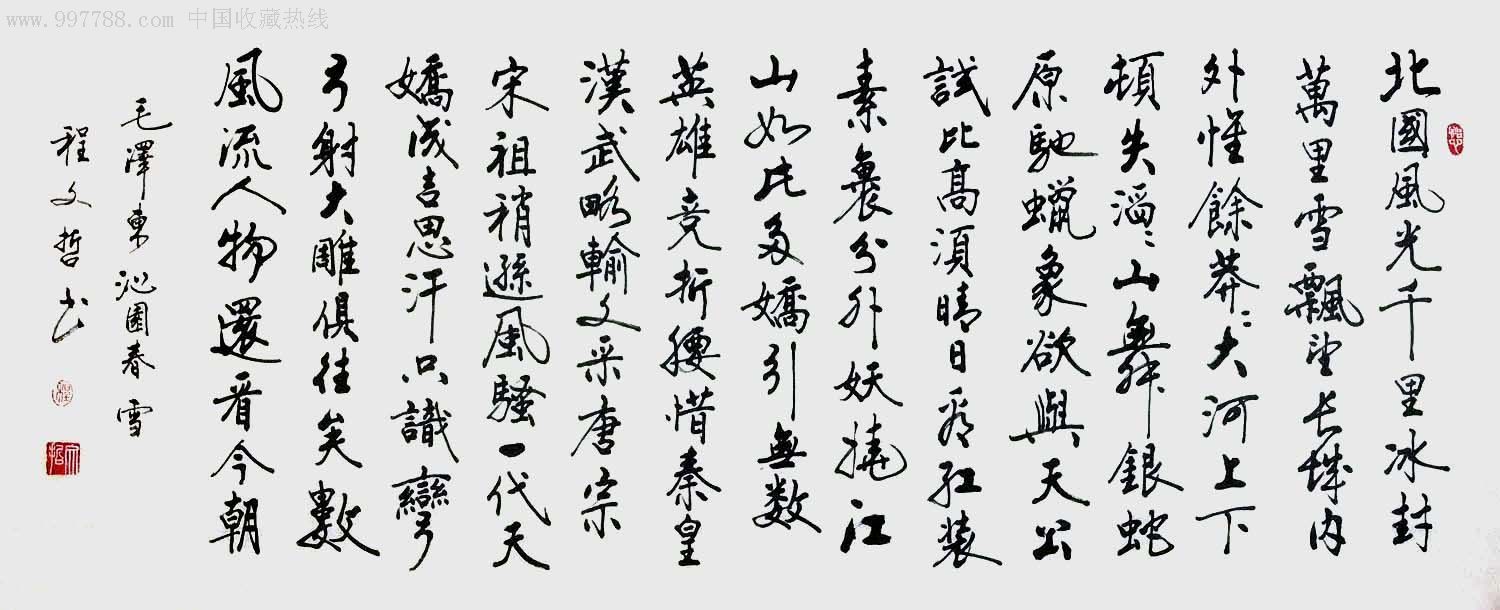 www.997788.com 中国收藏热线
北國風光千里冰封
萬里雪飄望长城内
外惟餘莽〻大河上下
頓失滔〻山舞銀蛇
原馳蠟象欲與天公
試比髙須晴日看红装
素裹分外妖撓江
山如此多嬌引無数
英雄竞折腰惜秦皇
漢武略輸文采唐宗
宋祖稍遜風騷一代天
嬌成吉思汗只識彎弓
弓射大雕俱往矣數
風流人物還看今朝
毛澤東沁園春雪
程文哲书